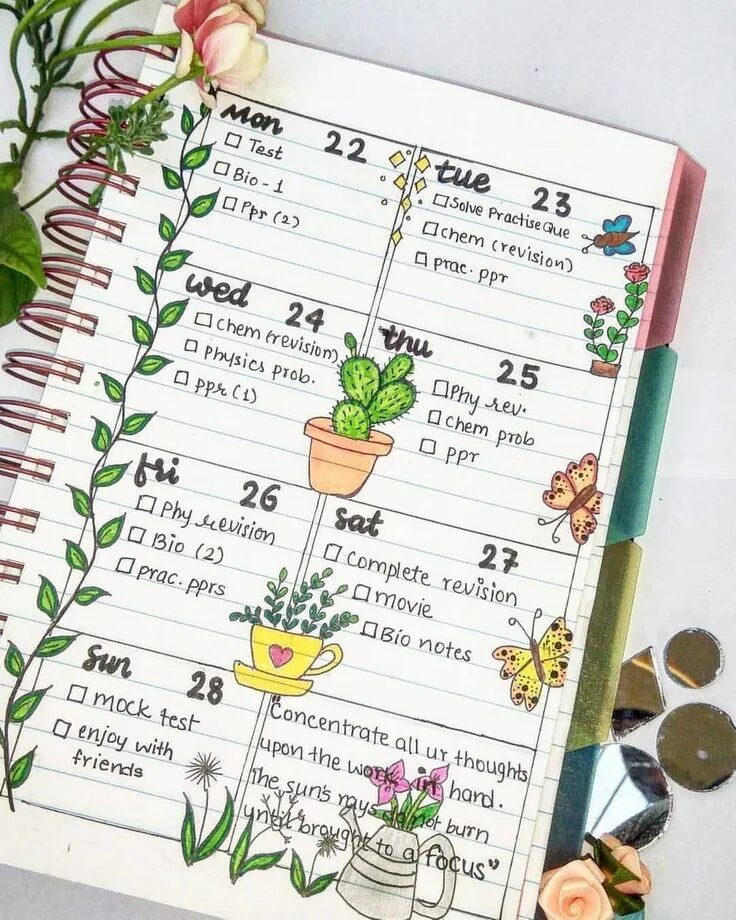 Mon 22
☐ Test
☐ Bio - 1
☐ Ppr (2)
tue 23
☐ Solve Practise Que
☐ chem (revision)
☐ prac. ppr
wed 24
☐ Chem (revision)
☐ physics prob.
☐ ppr (1)
thu 25
☐ Phy rev.
☐ chem prob
☐ ppr
fri 26
☐ Phy revision
☐ Bio (2)
☐ prac. pprs
sat 27
☐ Complete revision
☐ movie
☐ Bio notes
Sun 28
☐ mock test
☐ enjoy with
friends
"Concentrate all ur thoughts
upon the work in hand.
The sun's rays do not burn
until brought to a focus"